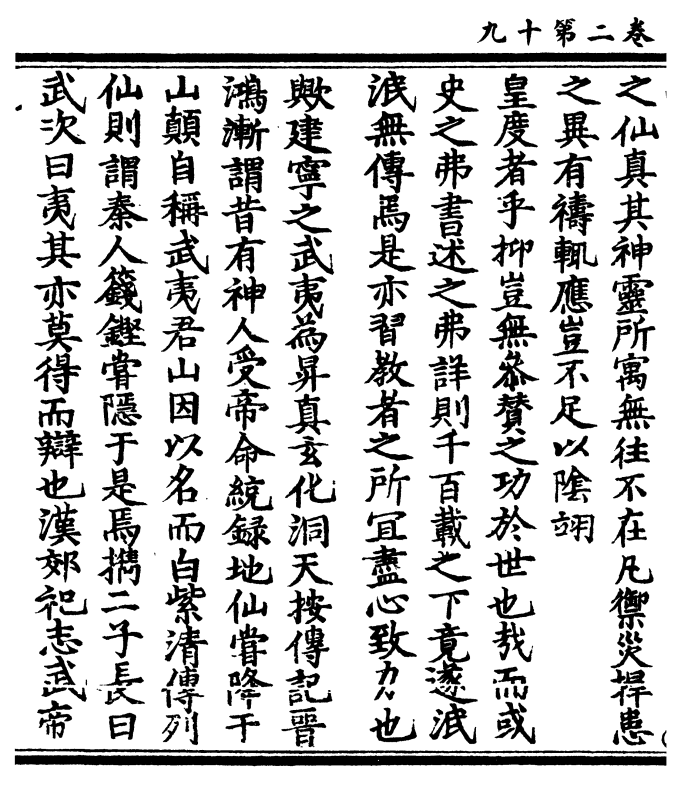 卷二第十九
之仙真其神靈所寓無往不在凡禦災捍患
之異有禱輒應豈不足以陰翊
皇度者乎抑豈無叅賛之功於世也㢤而或
史之弗書述之弗詳則千百載之下竟遂泯
泯無傳焉是亦習教者之所冝盡心致力也
歟建寧之武夷為昇真玄化洞天按傳記晉
鴻漸謂昔有神人受帝命統録地仙甞降于
山顛自稱武夷君山因以名而白紫清傳列
仙則謂秦人籛鏗甞隱于是焉携二子長曰
武次曰夷其亦莫得而辯也漢郊祀志武帝